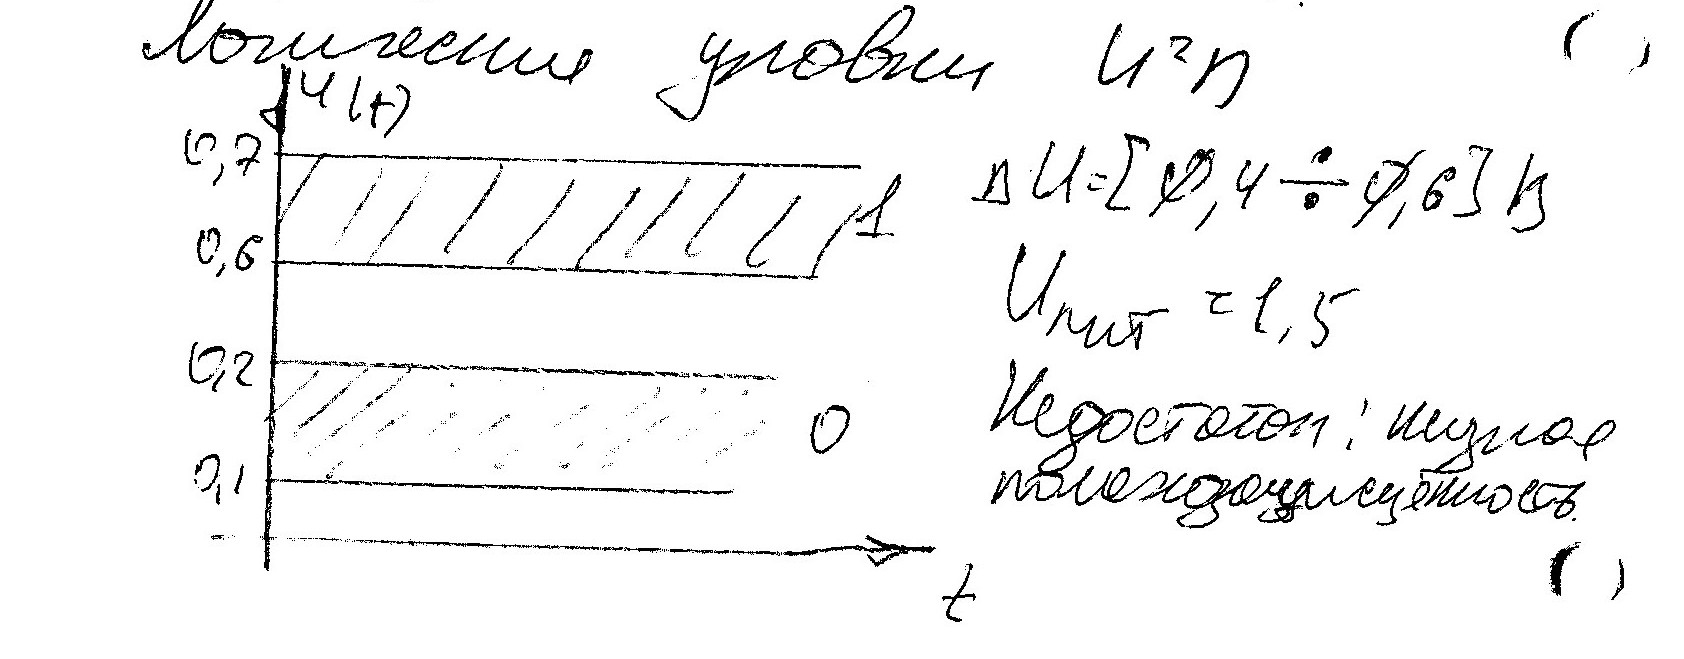 Логические уровни И²Л
U(t)
0,7
0,6
1
0,2
0
0,1
t
ΔU=[0,4÷0,6] В
Uпит =1,5
Недостаток: низкая
помехозащищённость.